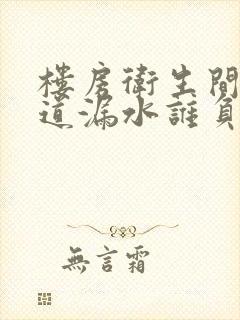 樓房衛生間
道漏水誰負
無言霜